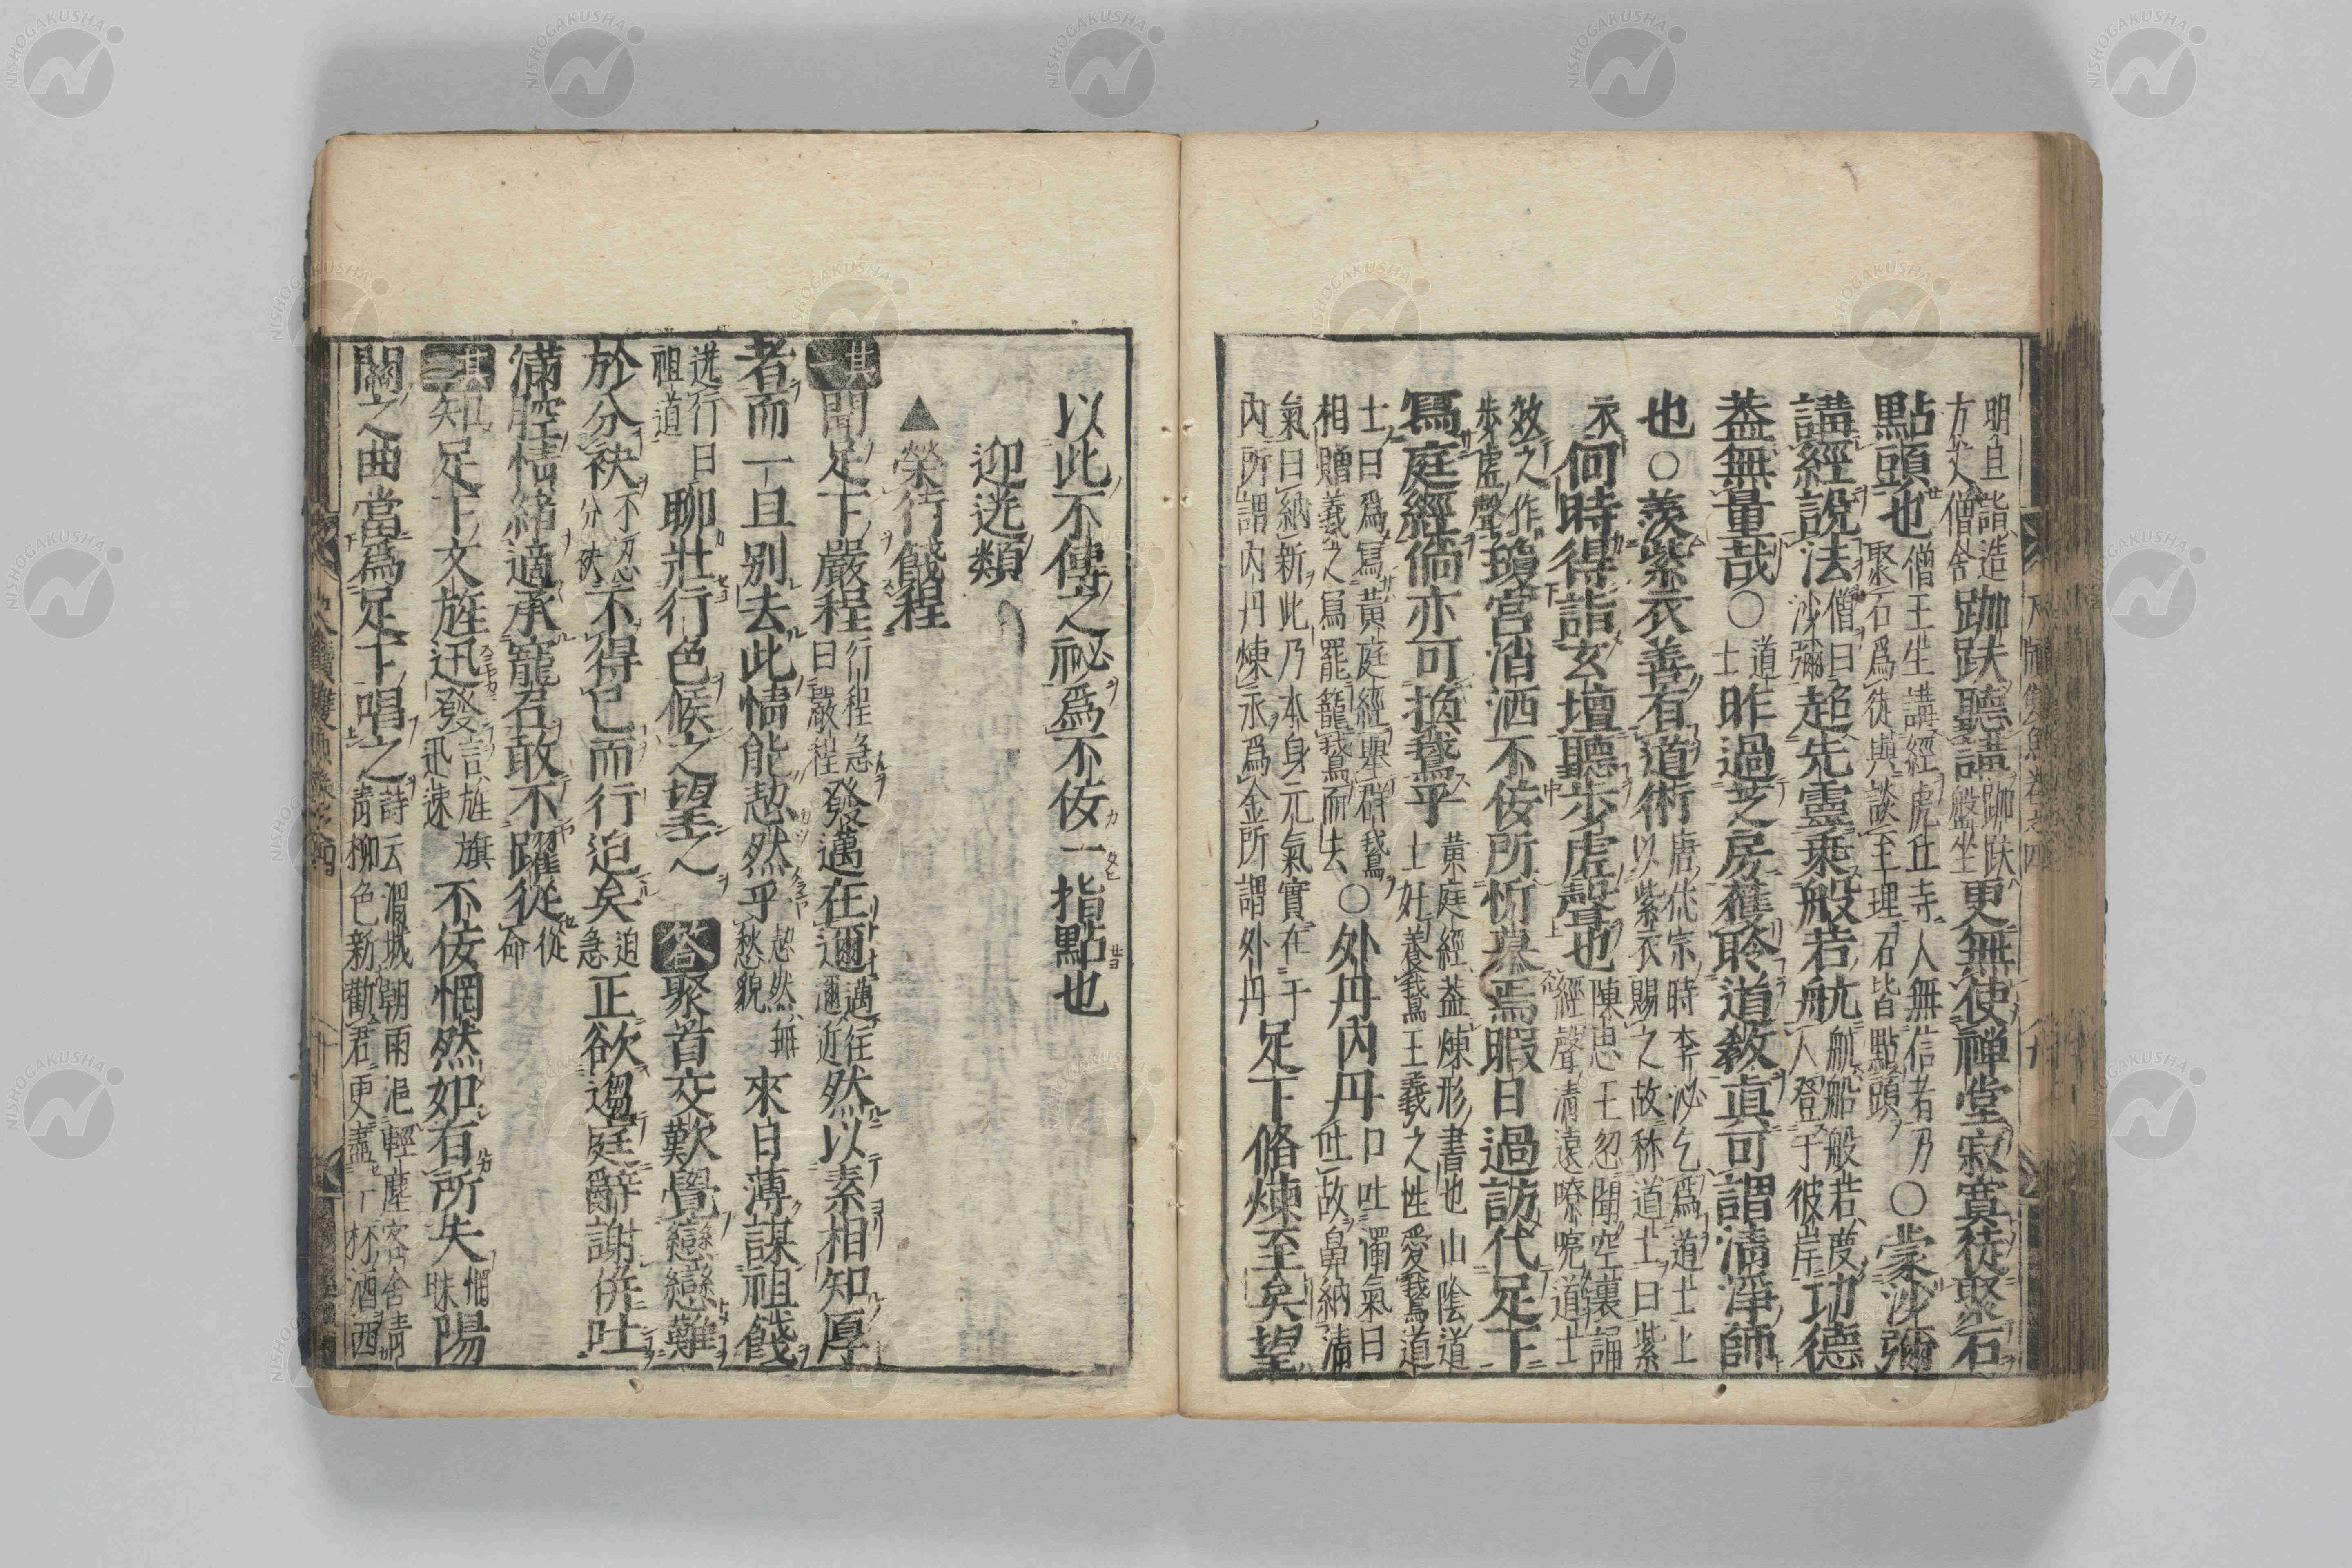 明且詣造
方丈僧舍跏趺聽講跏趺盤坐更無使禪堂寂寞徒聚石
點頭也僧王生講經虎丘寺人無信者乃
聚石爲徒與談至理石皆點頭○蒙沙彌
講經說法僧曰沙彌趁先靈乘般若航航船般若度人登于彼岸功德
蓋無量哉○道士昨過芝房獲聆道教眞可謂清淨師
也○羨紫衣善有道術唐代宗時李泌乞爲道士上
以紫衣賜之故称道士曰紫衣
何時得詣玄壇聽步虛聲也陳思王忽聞空裏誦
經聲清遠嘹喨道士
效之作步虛聲瓊宮瀟洒不佞所忻慕焉暇日過訪代足下
寫庭經倘亦可換鵞乎黄庭經蓋煉形書也山陰道
士好養鵞王羲之性愛鵞道
士曰爲寫黄庭經擧群鵞
相贈羲之寫罷籠鵞而去○外丹內丹口吐濁氣曰
吐故鼻納清
氣曰納新此乃本身元氣實在于
內所謂內丹煉汞爲金所謂外丹足下脩煉至矣望
以此不傳之祕爲不佞一指點也
迎送類
▲榮行餞程
其一聞足下嚴程行程急
曰嚴程發邁在邇邁往
邇近然以素相知厚
者而一旦別去此情能恝然乎恝然無
愁貌來日薄謀祖餞
送行曰
祖道聊壯行色候之望之 答聚首交歡覺戀戀難
於分袂不忍
分袂不得已而行迫矣迫
急正欲趨庭辭謝併吐
滿腔情緒適承寵召敢不躍從從
命
其二知足下文旌迅發言旌旗
迅速不佞惘然如有所失惘
昧陽
關之曲當爲足下唱之詩云渭城朝雨浥輕塵客舍青
青柳色新勸君更盡一杯酒西